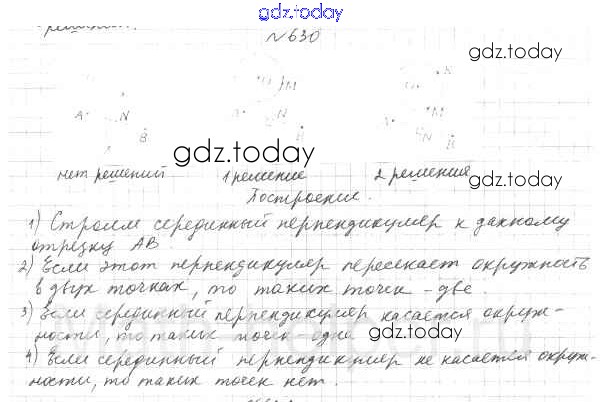 gdz.today
№630
gdz.today
O M K
A N B
A N B
A M N B
gdz.today
gdz.today
нет решений 1 решение 2 решения
gdz.today
Построение.
1) Строим серединный перпендикуляр к данному
отрезку AB.
2) Если этот перпендикуляр пересекает окружность
в двух точках, то таких точек - две.
3) Если серединный перпендикуляр касается окруж-
ности, то таких точек одна
gdz.today
4) Если серединный перпендикуляр не касается окруж-
ности, то таких точек нет.